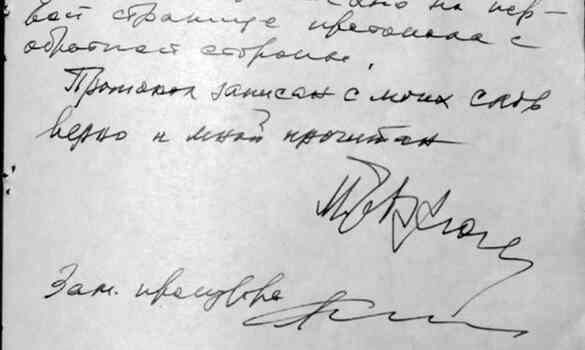 сано на пер-
вой странице протокола с
обратной стороны.
Протокол записан с моих слов
верно и мной прочитан
Зам. прокурора